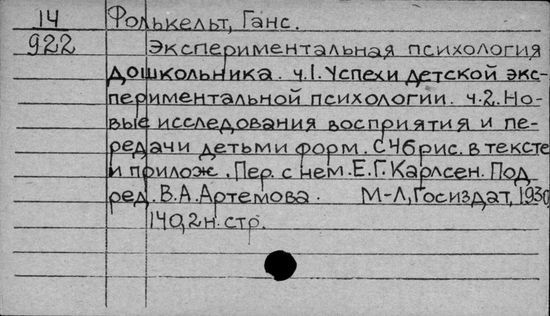 14 Фолькельт, Ганс.
922 Экспериментальная психология
дошкольника. ч.1. Успехи детской экс-
периментальной психологии. ч.2. Но-
вые исследования восприятия и пе-
редачи детьми форм. С 46 рис. в тексте
и прилож. Пер. с нем. Е.Г. Карлсен. Под
ред. В.А. Артемова. М-Л, Госиздат, 1930,
140, 2 н. стр.